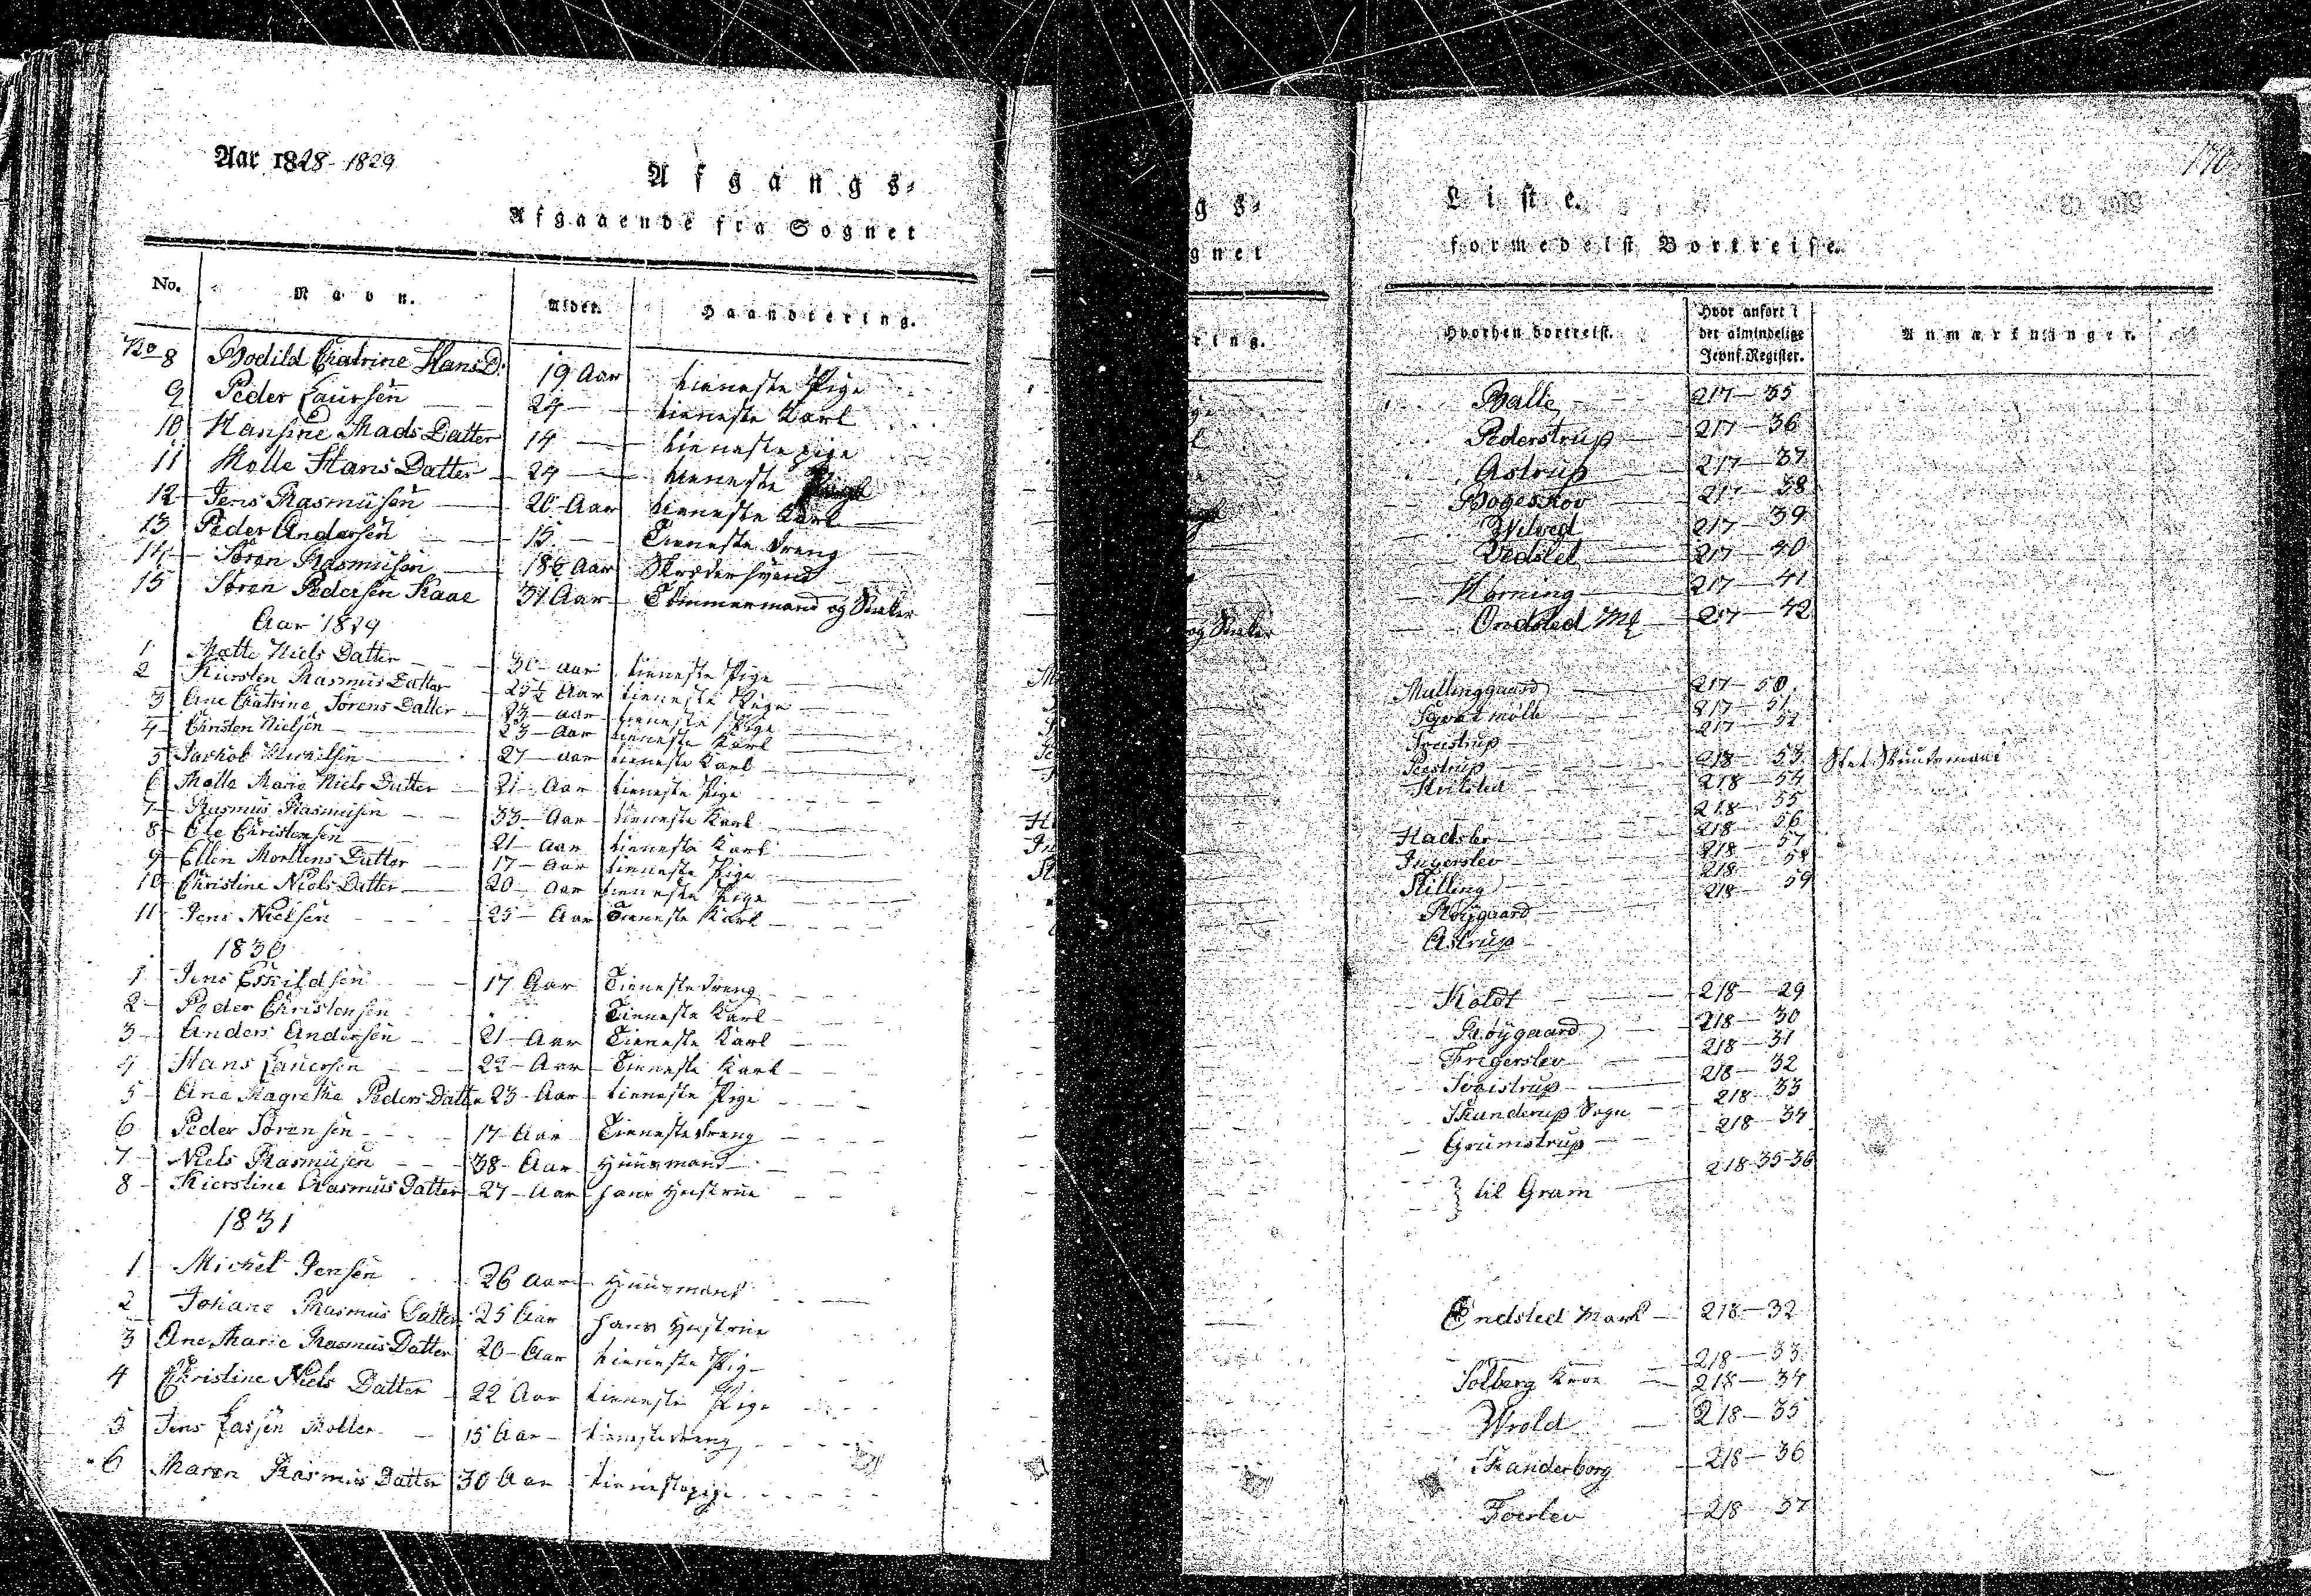 Aar 1828-1829
Afgangs-
Afgaaende fra Sognet
No. Navn. Alder. Haandtering.
No 8 Bodild Catrine HansD. 19 Aar tieneste Pige
9 Peder Laursen 24 tieneste Karl
10 Hansine Mads Datter 14 tieneste pige
11 Molle Hans Datter 24 tieneste
12 Jens Rasmusen 20 Aar tieneste Karl
13 Peder Andersen 15 Tieneste dreng
14 Søren Rasmusen 18½ Aar Skrædersvend
15 Søren Pedersen Kaae 31 Aar Tømmermand og
Aar 1829
1 Mætte Niels Datter 30 aar tieneste Pige
2 Kiersten Rasmus Datter 25½ Aar tieneste Pige
3 Ane Catrine Sørens Datter 23 aar tieneste Pige
4 Christen Nielsen 23 Aar tieneste Karl
5 Jachob Michelsen 27 aar tieneste Karl
6 Molle Marie Niels Datter 21 Aar tieneste Pige
7 Rasmus Rasmusen 33 Aar tieneste Karl
8 Ole Christensen 21 aar tieneste Karl
9 Ellen Mortens Datter 17 aar tieneste Pige
10 Christine Niels Datter 20 aar tieneste Pige
11 Jens Nielsen 25 Aar Tieneste Karl
1830
1 Jens Eskildsen 17 Aar Tieneste dreng
2 Peder Christensen " Tieneste Karl
3 Anders Andersen 21 Aar Tieneste Karl
4 Hans Lauersen 22 Aar Tieneste Karl
5 Ane Magrethe Peders Datter 23 Aar tieneste Pige
6 Peder Sørensen 17 Aar Tieneste dreng
7 Niels Rasmusen 38 Aar Huusmand
8 Kierstine Rasmus Datter 27 Aar hans Hustrue
1831
1 Michel Jensen 26 Aar Huusmand
2 Johane Rasmus Datter 25 Aar hans Hustrue
3 Ane Marie Rasmus Datter 20 Aar tieneste Pige
4 Christine Niels Datter 22 Aar tieneste Pige
5 Jens Lassen Møller 15 Aar tienestedreng
6 Maren Rasmus Datter 30 Aar tienestepige
gs-
gnet
ring.
170
Liste.
formedelst Bortreise.
Hvorhen bortreist. Hvor anført i der almindelige Jevnf.Register. Anmærkninger.
Balle 217-35
Pederstrup 217-36
Astrup 217-37
Bogeskov 217-38
Wilved 217-39
Vedslet 217-40
Hørning 217-41
Ondsted Mk 217-42
Mullinggaard 217-50
217-51
Sveistrup 217-52
218-53
218-54
218-55
218-56
Ingerslev 218-57
Stilling 218-58
Støygaard 218-59
Astrup
Koldt 218-29
Støygaard 218-30
Frigerslev 218-31
Sveistrup 218-32
Skanderup Sogn 218-33
Grumstrup 218-34
} til Gram 218-35-36
Endsled Mark 218-32
218-33
Solberg Kroe 218-34
Wrold 218-35
Skanderborg 218-36
Foerlev 218-37